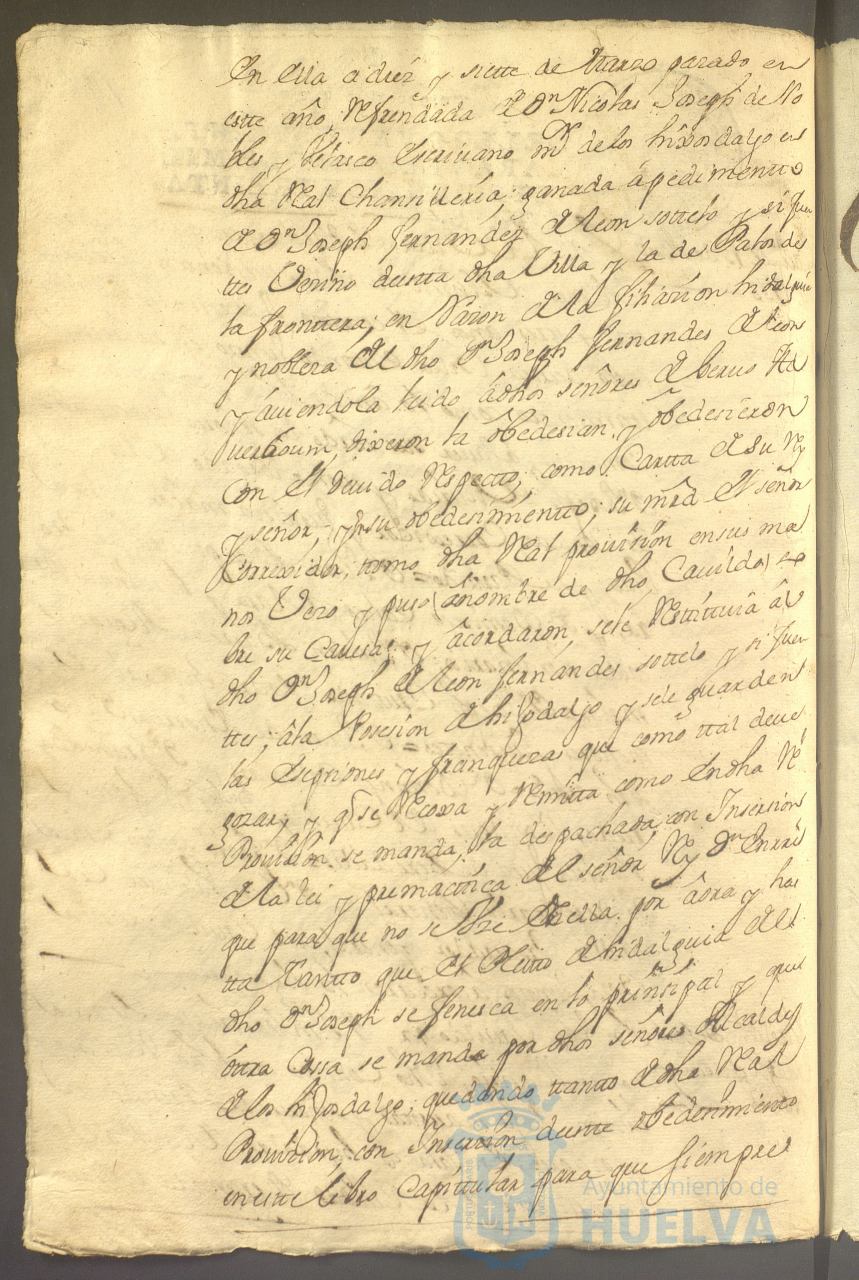 En ella a diez y siette de Marzo pasado en
estte año, Refrendada de Dn Nicolas Joseph de Ro
bles y Velasco Escriuano mr de los hixosdalgo en
dha Real Chansilleria; ganada â pedimentto
de Dn Joseph fernandez de leon sottelo y si fuen
ttes Vezino de estta dha Villa y la de Palos de
la fronttera; en Razon de la filiazion hidalguia
y nobleza del dho Dn Joseph fernandes de leon
y auiendola leido âdhos señores de berbo Ad
uerboum, dixeron la ôbedesian, y ôbedesieron
con el deuido Respectto, como Cartta de su Rey
y señor; y en su obedesimientto; su mrd el señor
Correxidor, ttomo dha Real prouision en sus ma
nos Veso y puso (ânombre de dho Cauildo) so
bre su Cauesa; y âcordaron, se le Resttittuia âl
dho Dn Joseph de leon fernandes sottelo y si fuen
ttes; âla Posesion de hijodalgo y se le guarden
las Esepsiones y franquezas que como ttal deue
gozar; y qe se Recoxa y Remitta como en dha Rl
Prouision se manda, la despachada con Insersion
de la lei y premacttica del señor Rey Dn Enrri
que para que no se Vse de ella por âora y has
tta ttantto que el Pleitto de hidalguia del
dho Dn Joseph se fenesca en lo prinsipal y que
ôttra Cosa se mande por dhos señores Alcaldes
de los hijosdalgo; quedando ttantto de dha Real
Prouision, con Insersion de estte obedesimiento
en estte libro Capittular para que siempre
Ayuntamiento de
HUELVA